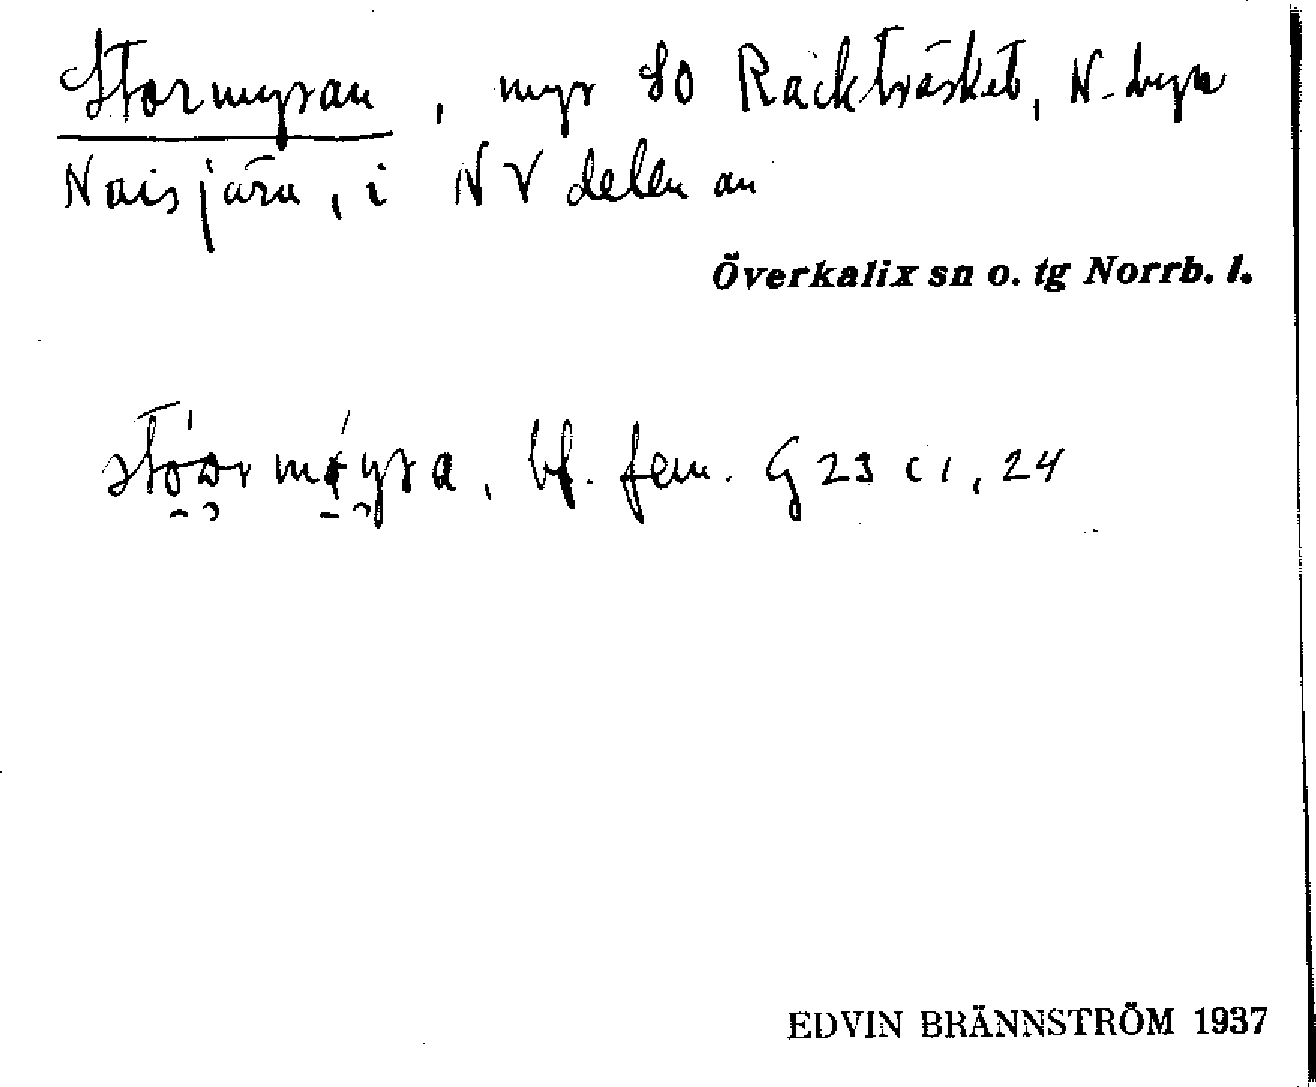 Stormyran, myr SO Räckträsket, N. byn
Naisjärv, i NV delen av
Överkalix sn o. tg Norrb. l.
bf. fem. G 23 c 1, 24
EDVIN BRÄNNSTRÖM 1937